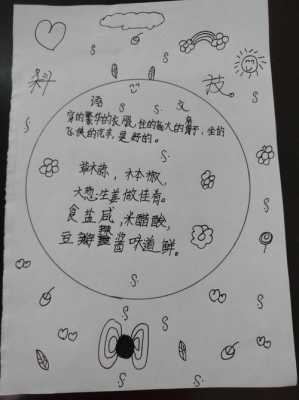 科 技
语 文
穿的繁华的衣服,住的高大的房子,坐的
飞快的汽车,是野的。
草木森,木本椒,
大葱生姜做佳肴。
食盐咸,米醋酸,
豆瓣辣酱味道鲜。